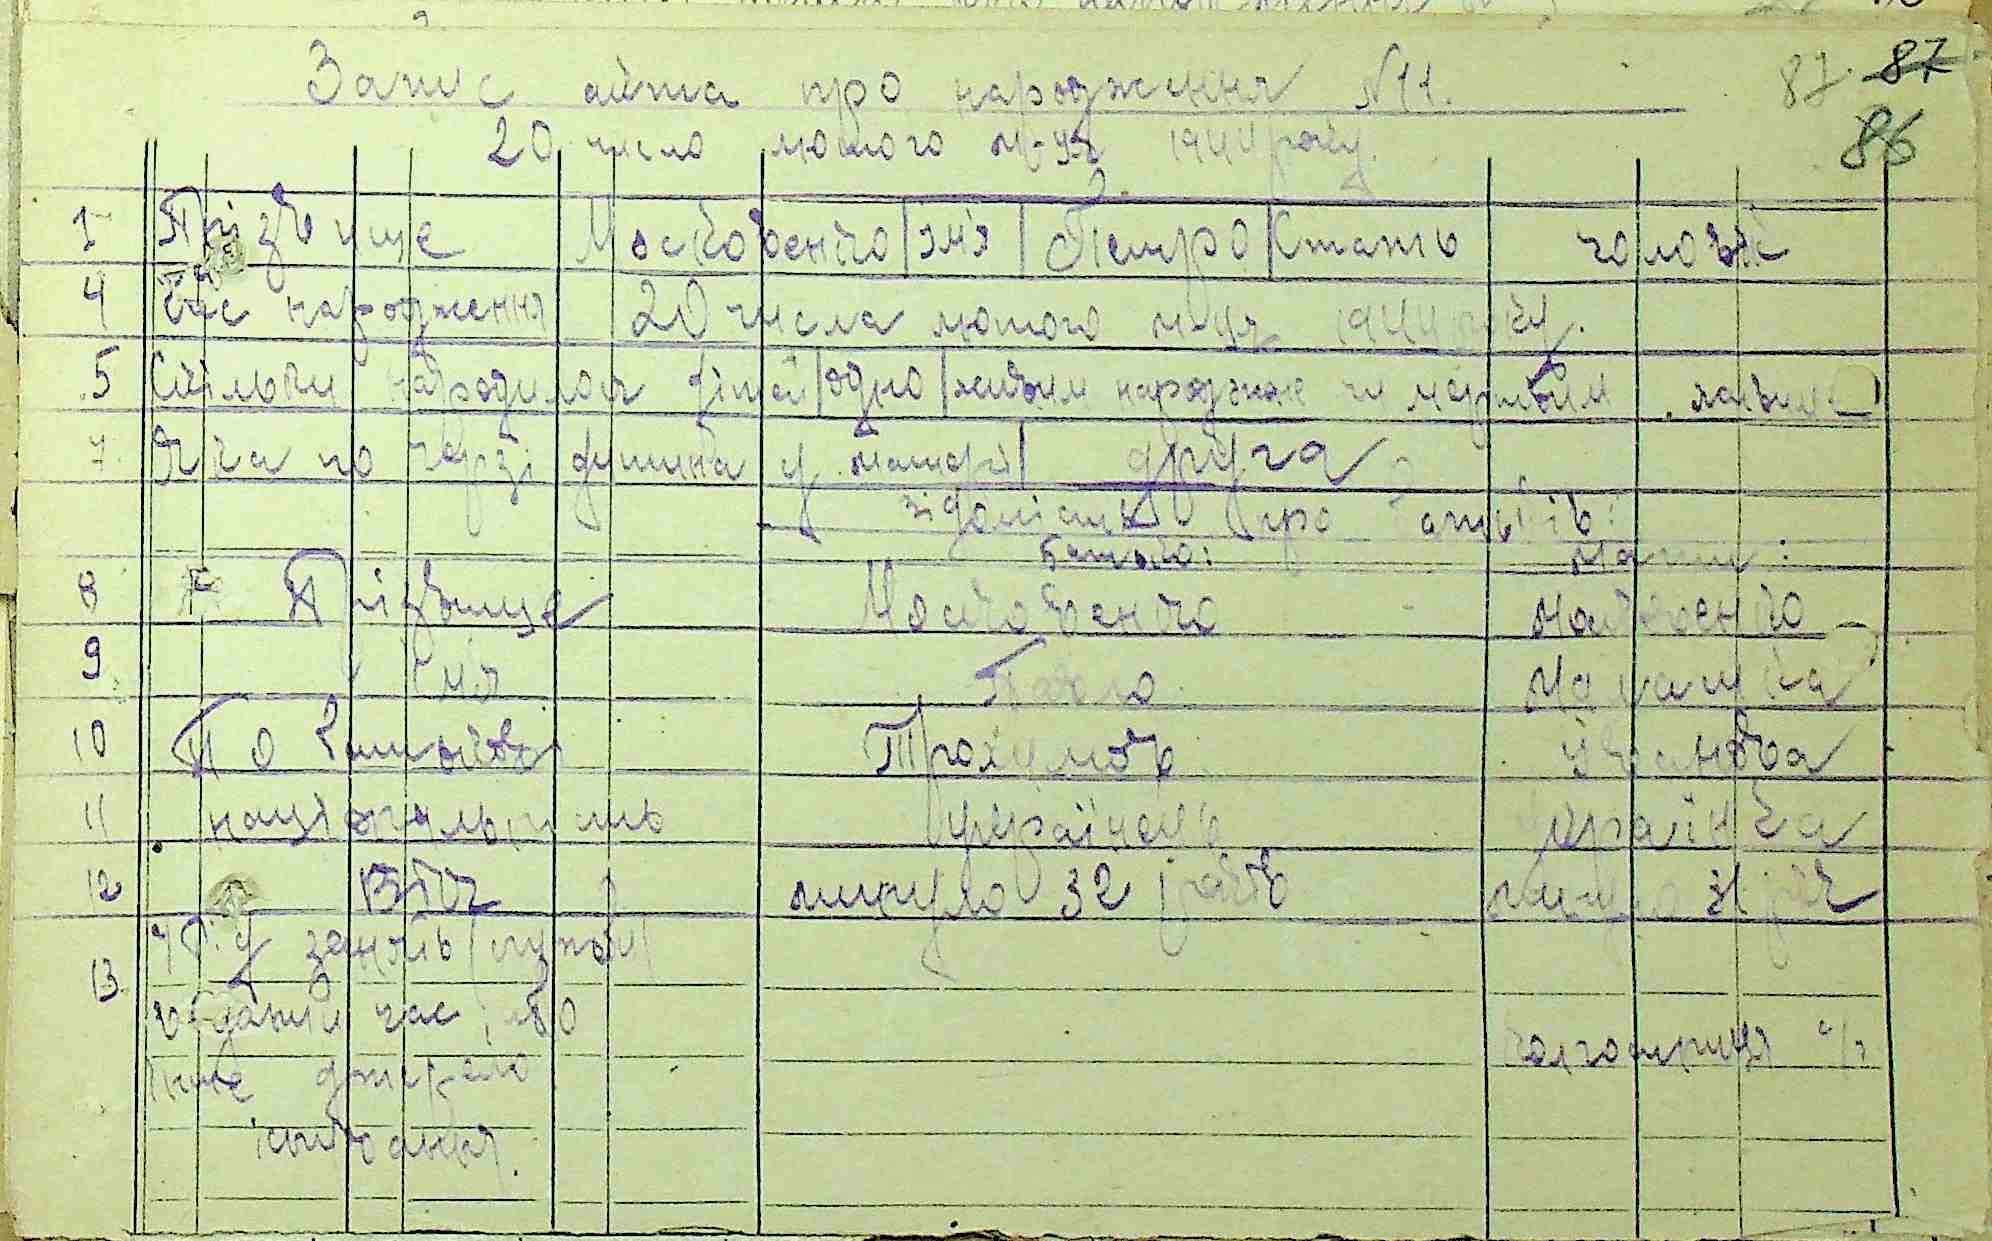 Запис акта про народження №11.
87 87
20 число лютого м-ця 1944 року.
86
1 Прізвище Московенко імя Петро Стать чоловік
4 Час народження 20 числа лютого м-ця 1944 року.
5 Скільки народилося дітей одно живим народжене чи мертвим живим
7 Яка по черзі дитина у матері друга
відомість про батьків:
Батько: Мати:
8 Прізвище Московенко Московенко
9 імя Павло Малашка
10 По батькові Трохимов Іванова
11 національність українець українка
12 Вік минуло 32 років минуло 31 рік
занять служби
13 в даний час або
інше джерело
існування.
колгоспниця